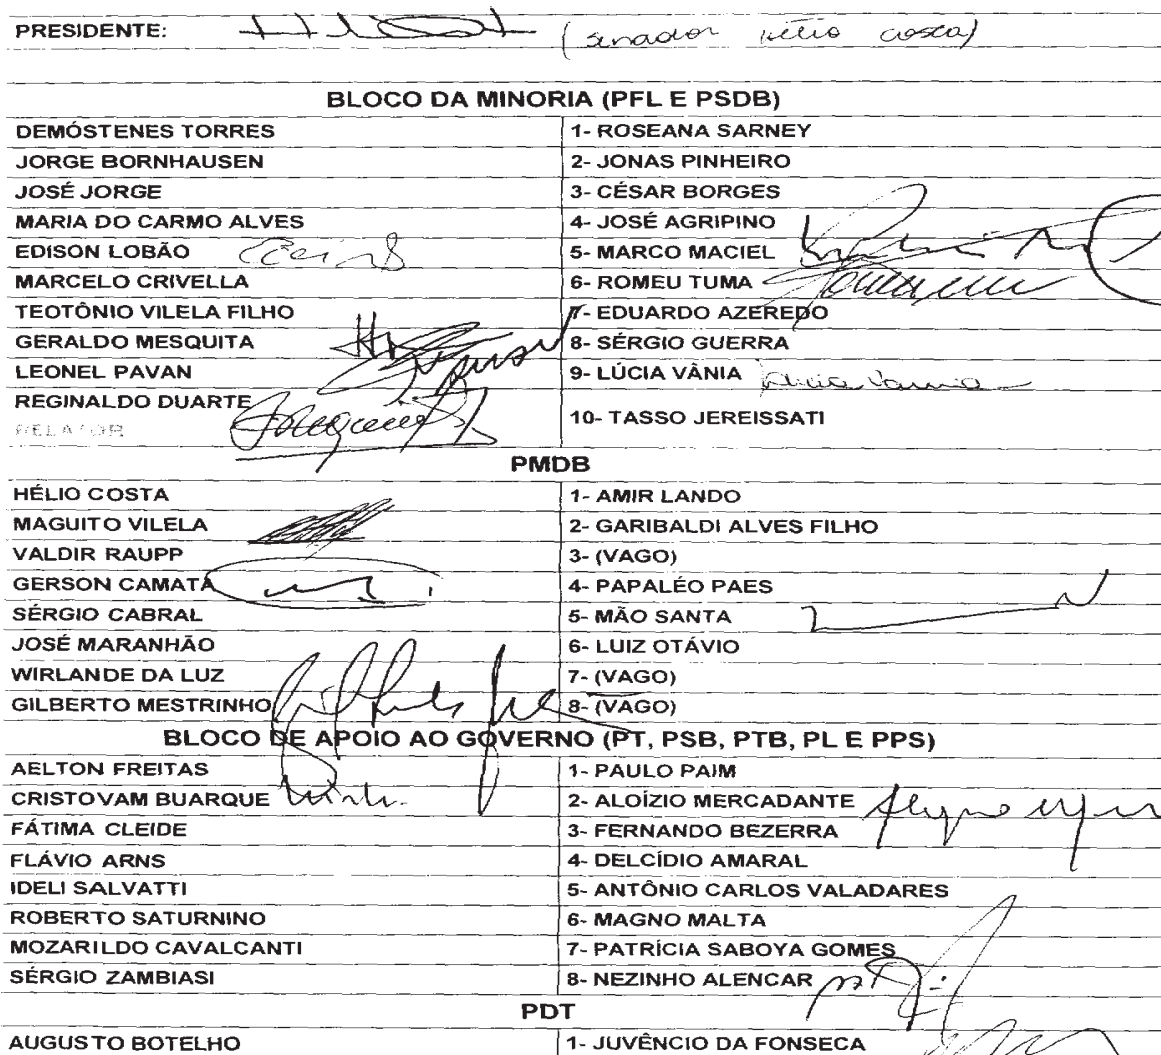 PRESIDENTE: (Senador Hélio Costa)
BLOCO DA MINORIA (PFL E PSDB)
DEMÓSTENES TORRES 1- ROSEANA SARNEY
JORGE BORNHAUSEN 2- JONAS PINHEIRO
JOSÉ JORGE 3- CÉSAR BORGES
MARIA DO CARMO ALVES 4- JOSÉ AGRIPINO
EDISON LOBÃO 5- MARCO MACIEL
MARCELO CRIVELLA 6- ROMEU TUMA
TEOTÔNIO VILELA FILHO 7- EDUARDO AZEREDO
GERALDO MESQUITA 8- SÉRGIO GUERRA
LEONEL PAVAN 9- LÚCIA VÂNIA Lúcia Vânia
REGINALDO DUARTE 10- TASSO JEREISSATI
RELATOR
PMDB
HÉLIO COSTA 1- AMIR LANDO
MAGUITO VILELA 2- GARIBALDI ALVES FILHO
VALDIR RAUPP 3- (VAGO)
GERSON CAMATA 4- PAPALÉO PAES
SÉRGIO CABRAL 5- MÃO SANTA
JOSÉ MARANHÃO 6- LUIZ OTÁVIO
WIRLANDE DA LUZ 7- (VAGO)
GILBERTO MESTRINHO 8- (VAGO)
BLOCO DE APOIO AO GOVERNO (PT, PSB, PTB, PL E PPS)
AELTON FREITAS 1- PAULO PAIM
CRISTOVAM BUARQUE 2- ALOÍZIO MERCADANTE
FÁTIMA CLEIDE 3- FERNANDO BEZERRA
FLÁVIO ARNS 4- DELCÍDIO AMARAL
IDELI SALVATTI 5- ANTÔNIO CARLOS VALADARES
ROBERTO SATURNINO 6- MAGNO MALTA
MOZARILDO CAVALCANTI 7- PATRÍCIA SABOYA GOMES
SÉRGIO ZAMBIASI 8- NEZINHO ALENCAR
PDT
AUGUSTO BOTELHO 1- JUVÊNCIO DA FONSECA